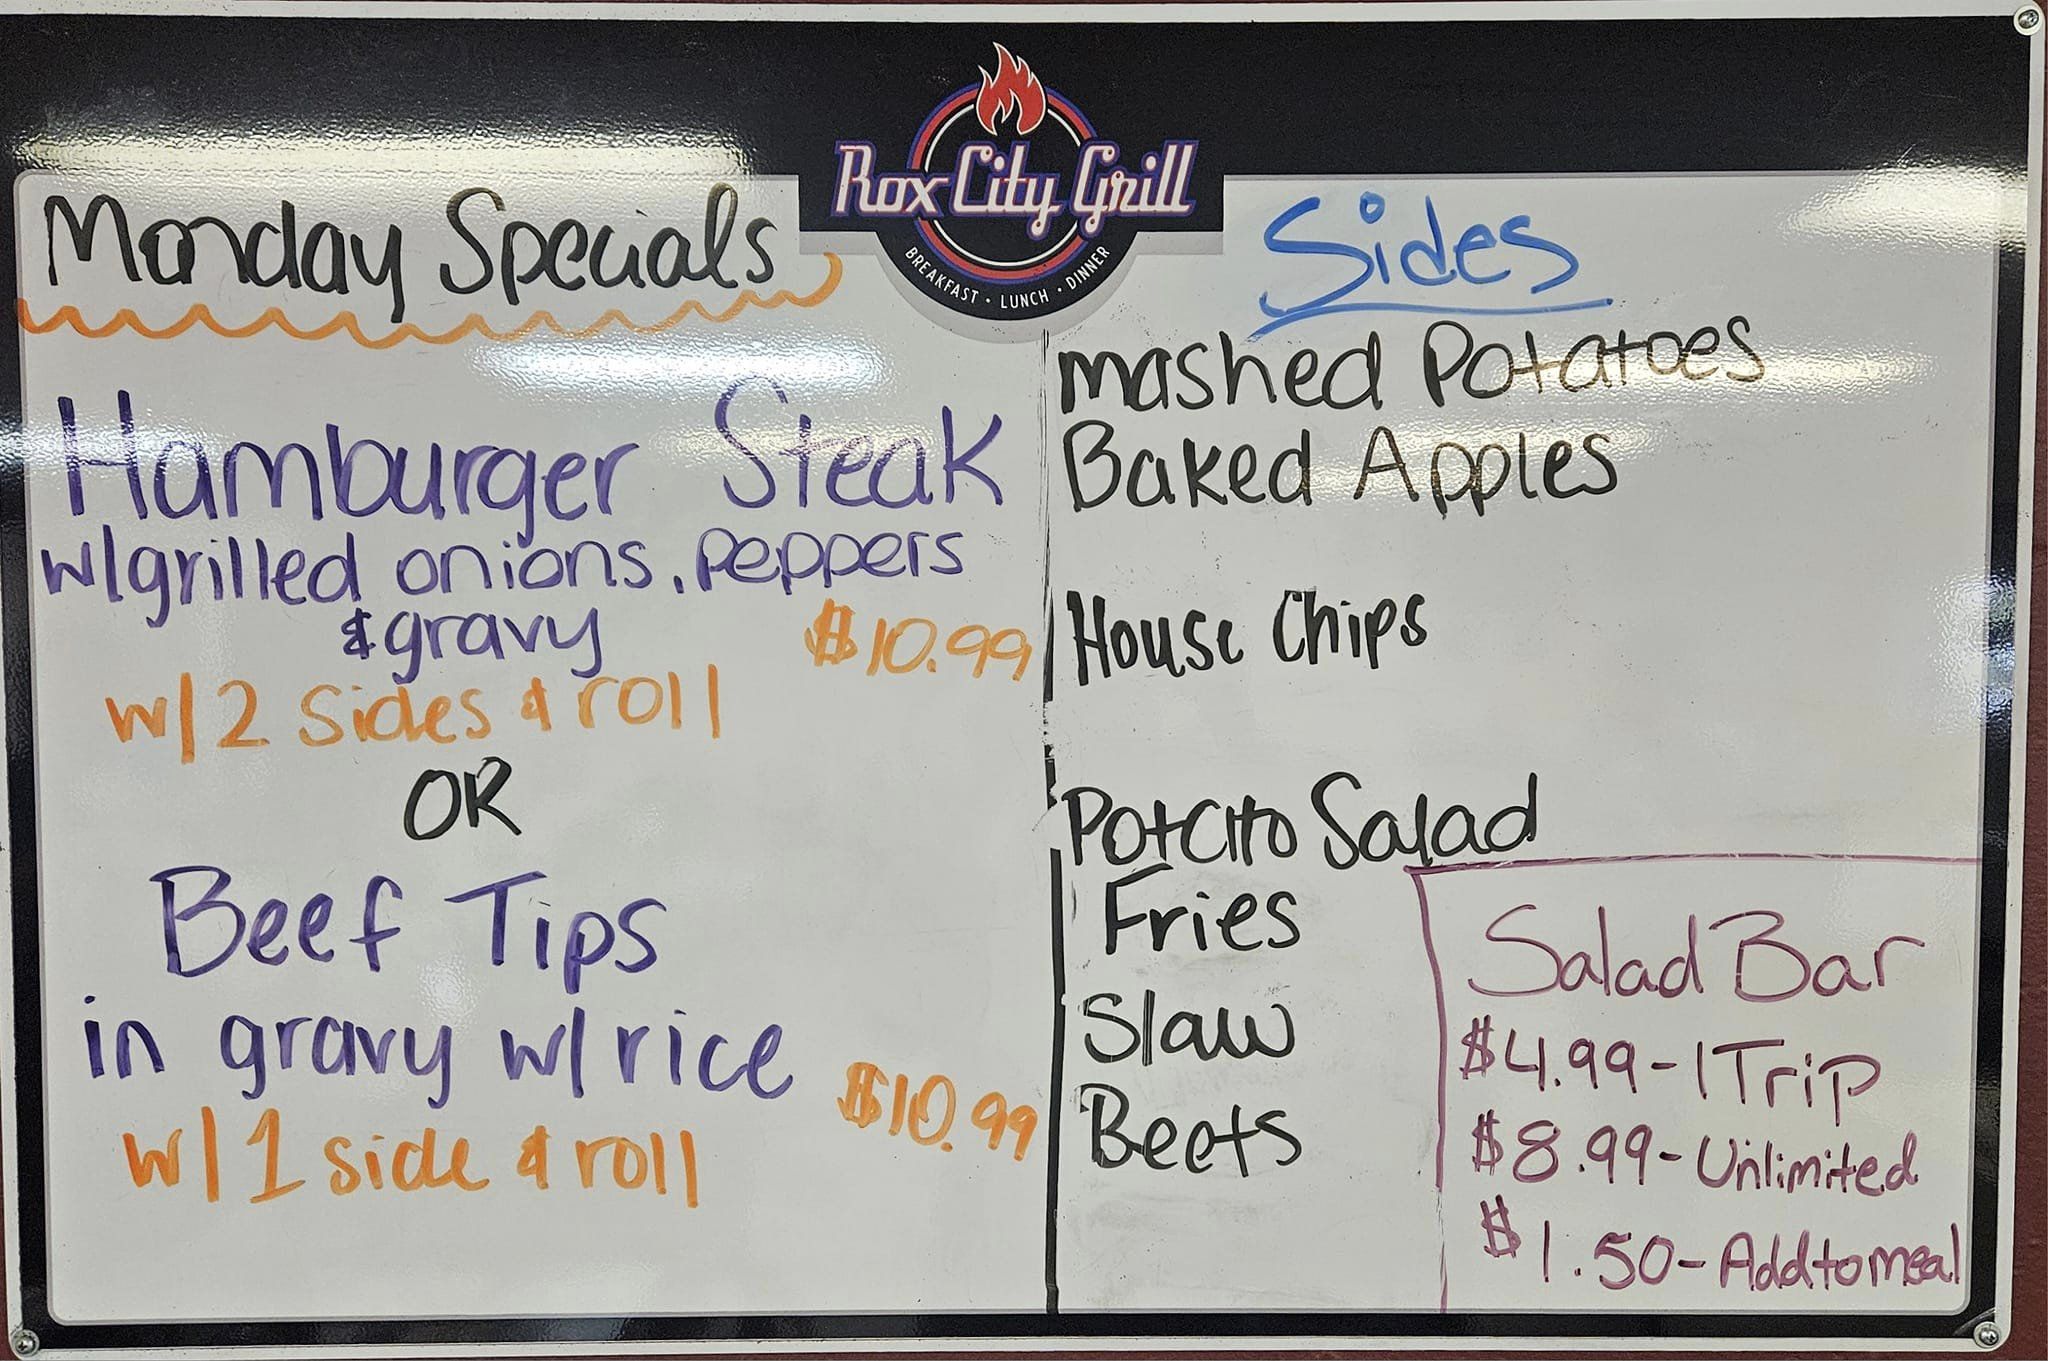 Rox City Grill
BREAKFAST • LUNCH • DINNER
Monday Specials
Hamburger Steak
w/grilled onions, peppers
& gravy
$10.99
w/ 2 sides & roll
OR
Beef Tips
in gravy w/ rice
$10.99
w/ 1 side & roll
Sides
mashed Potatoes
Baked Apples
House Chips
Potato Salad
Fries
Slaw
Beets
Salad Bar
$4.99-1 Trip
$8.99-Unlimited
$1.50-Add to meal